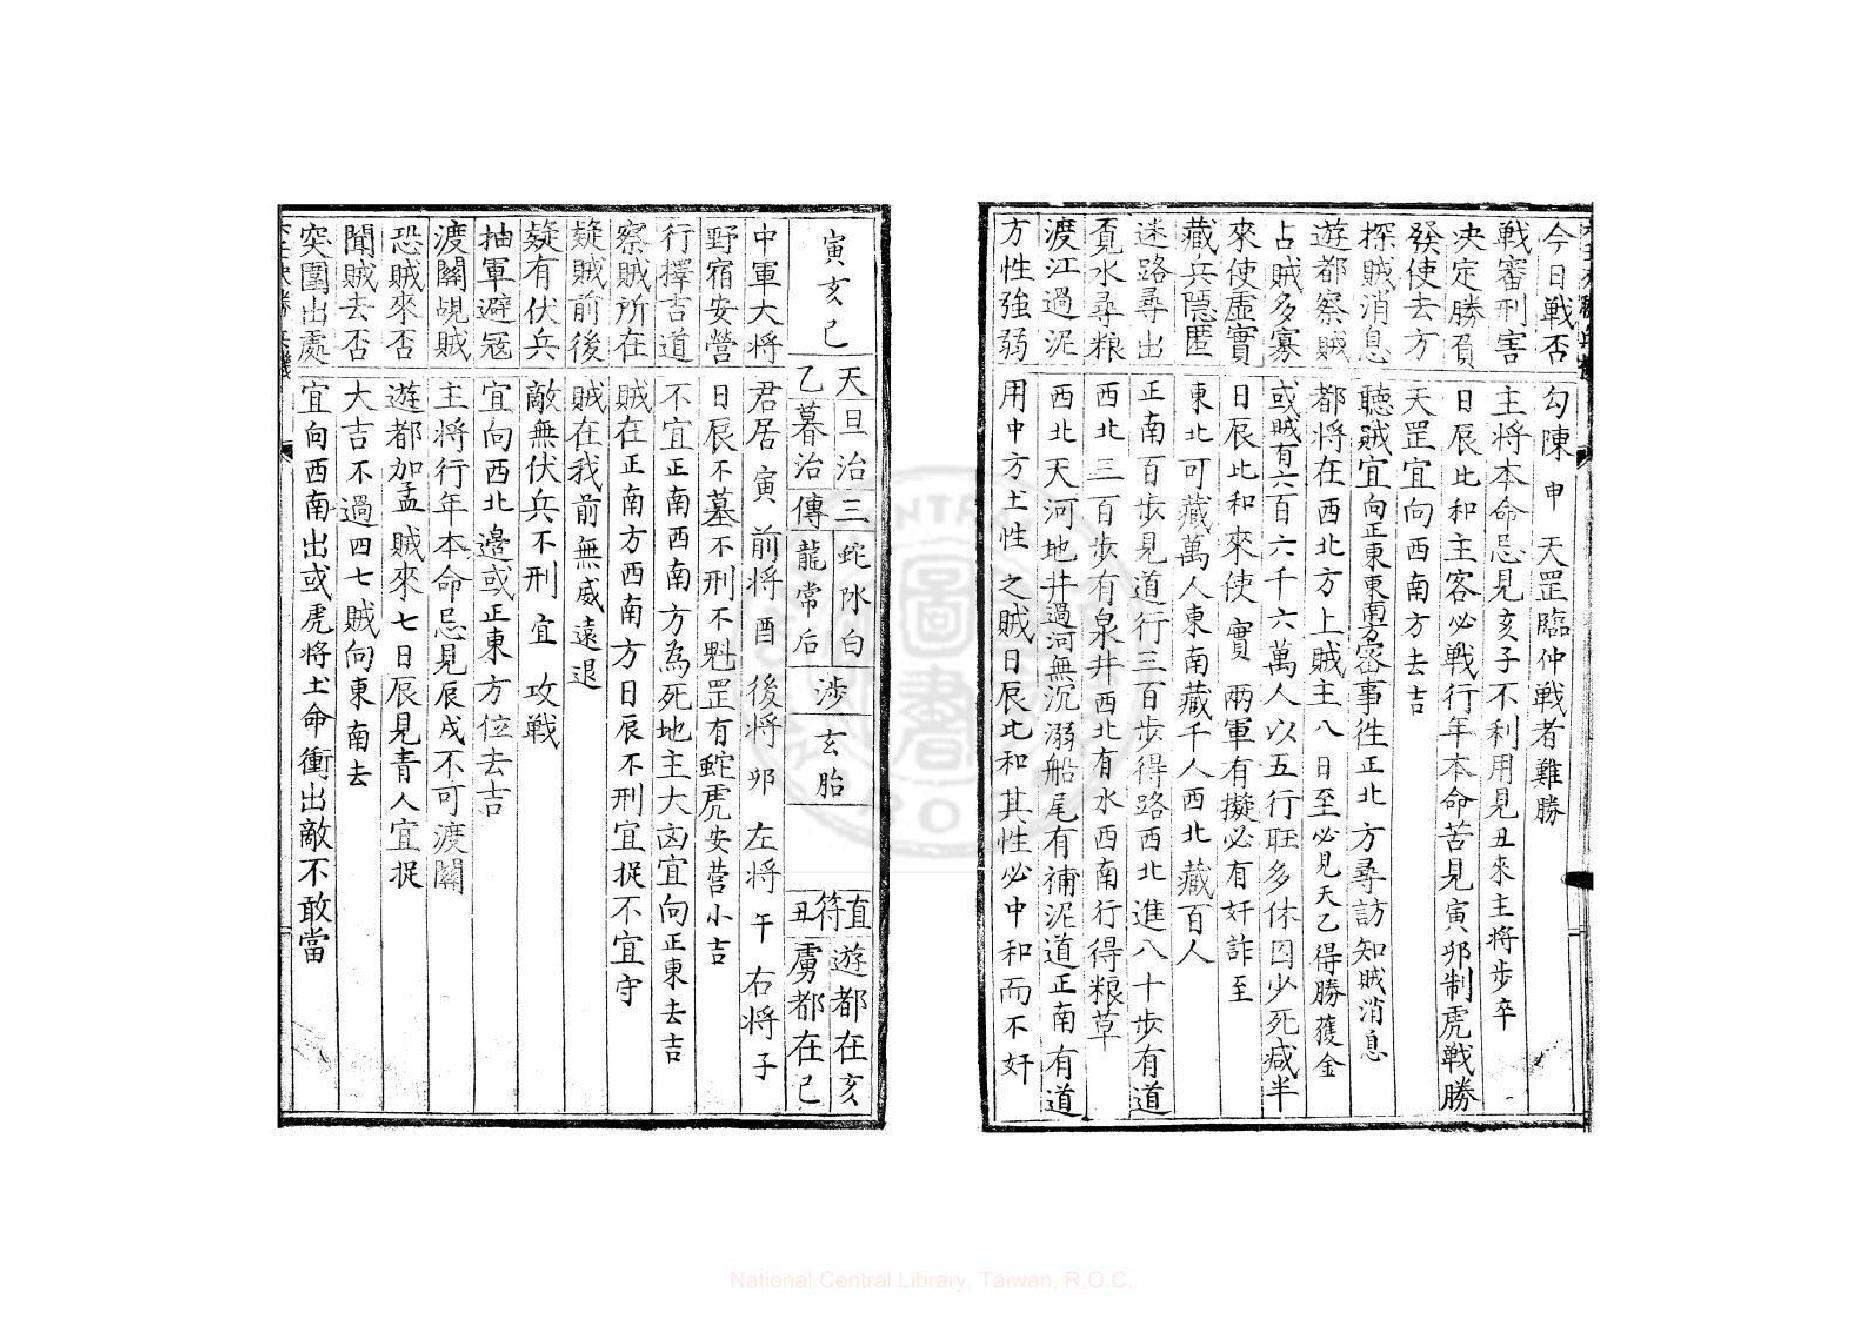 今日戰否 勾陳申 天罡臨仲戰者難勝
戰審刑害 主將本命忌見亥子不利用見丑來主將步卒
决定勝負 日辰比和主客必戰行年本命苦見寅卯制虎戰勝
發使去方 天罡宜向西南方去吉
探賊消息 聽賊宜向正東東南方密事徃正北方尋訪知賊消息
遊都察賊 都將在西北方上賊主八日至必見天乙得勝獲金
占賊多寡 或賊有六百六千六萬人以五行旺多休囚少死减半
來使虛實 日辰比和來使實 兩軍有擬必有奸詐至
藏兵隱匿 東北可藏萬人東南藏千人西北藏百人
迷路尋出 正南百步見道行三百步得路西北進八十步有道
覔水尋粮 西北三百步有泉井西北有水西南行得粮草
渡江過泥 西北天河地井過河無沉溺船尾有補泥道正南有道
方性強弱 用中方土性之賊日辰比和其性必中和而不奸
寅亥巳 天旦治 乙暮治 三傳 蛇阴白 龍常后 涉 玄胎 直符丑 遊都在亥 虜都在巳
中軍大將 君居寅 前將酉 後將卯 左將午 右將子
野宿安營 日辰不墓不刑不魁罡有蛇虎安營小吉
行擇吉道 不宜正南西南方為死地主大凶宜向正東去吉
察賊所在 賊在正南方西南方日辰不刑宜捉不宜守
疑賊前後 賊在我前無威遠退
疑有伏兵 敵無伏兵不刑 宜 攻戰
抽軍避冦 宜向西北邊或正東方位去吉
渡關覘賊 主將行年本命忌見辰戌不可渡關
恐賊來否 遊都加孟賊來七日辰見青人宜捉
聞賊去否 大吉不過四七賊向東南去
突圍出處 宜向西南出或虎將土命衝出敵不敢當
National Central Library, Taiwan, R.O.C.